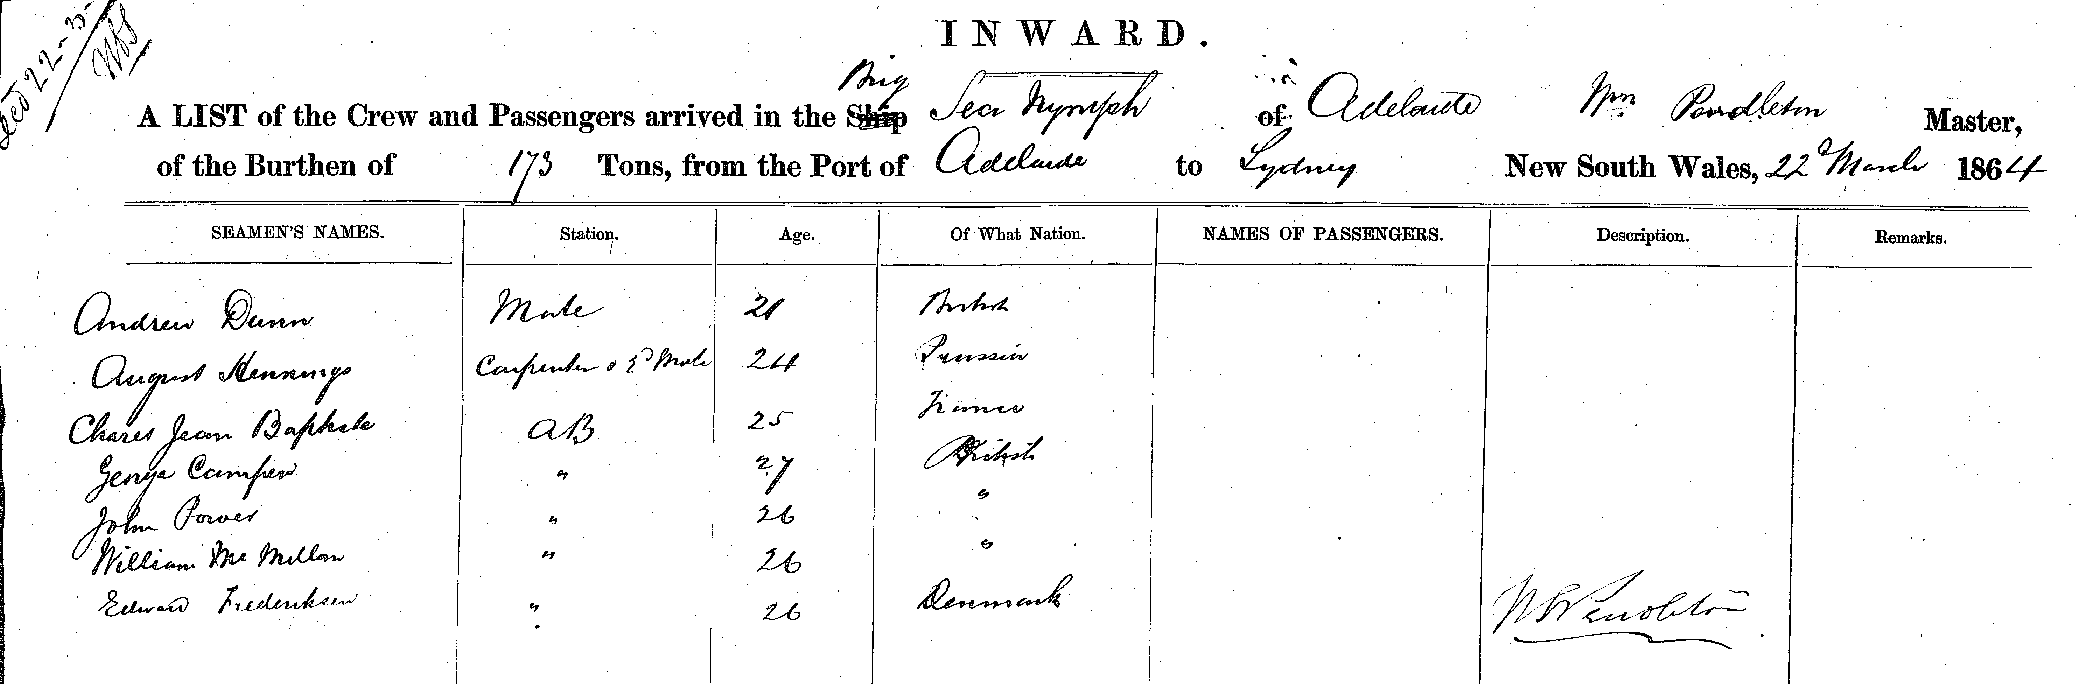 Recd 22-3-
INWARD.
Brig
A LIST of the Crew and Passengers arrived in the Ship Sea Nymph of Adelaide Wm Pendleton Master,
of the Burthen of 173 Tons, from the Port of Adelaide to Sydney New South Wales, 22d March 1864
SEAMEN'S NAMES. Station. Age. Of What Nation. NAMES OF PASSENGERS. Description. Remarks.
Andrew Dunn Mate 21 British
August Hennings Carpenter & 2d Mate 24 Prussia
Chares Jean Baptiste AB 25 France
George " 27 British
John Power " 26 "
William McMillan " 26 "
Edward Frederiksen " 26 Denmark
Wm Pendleton